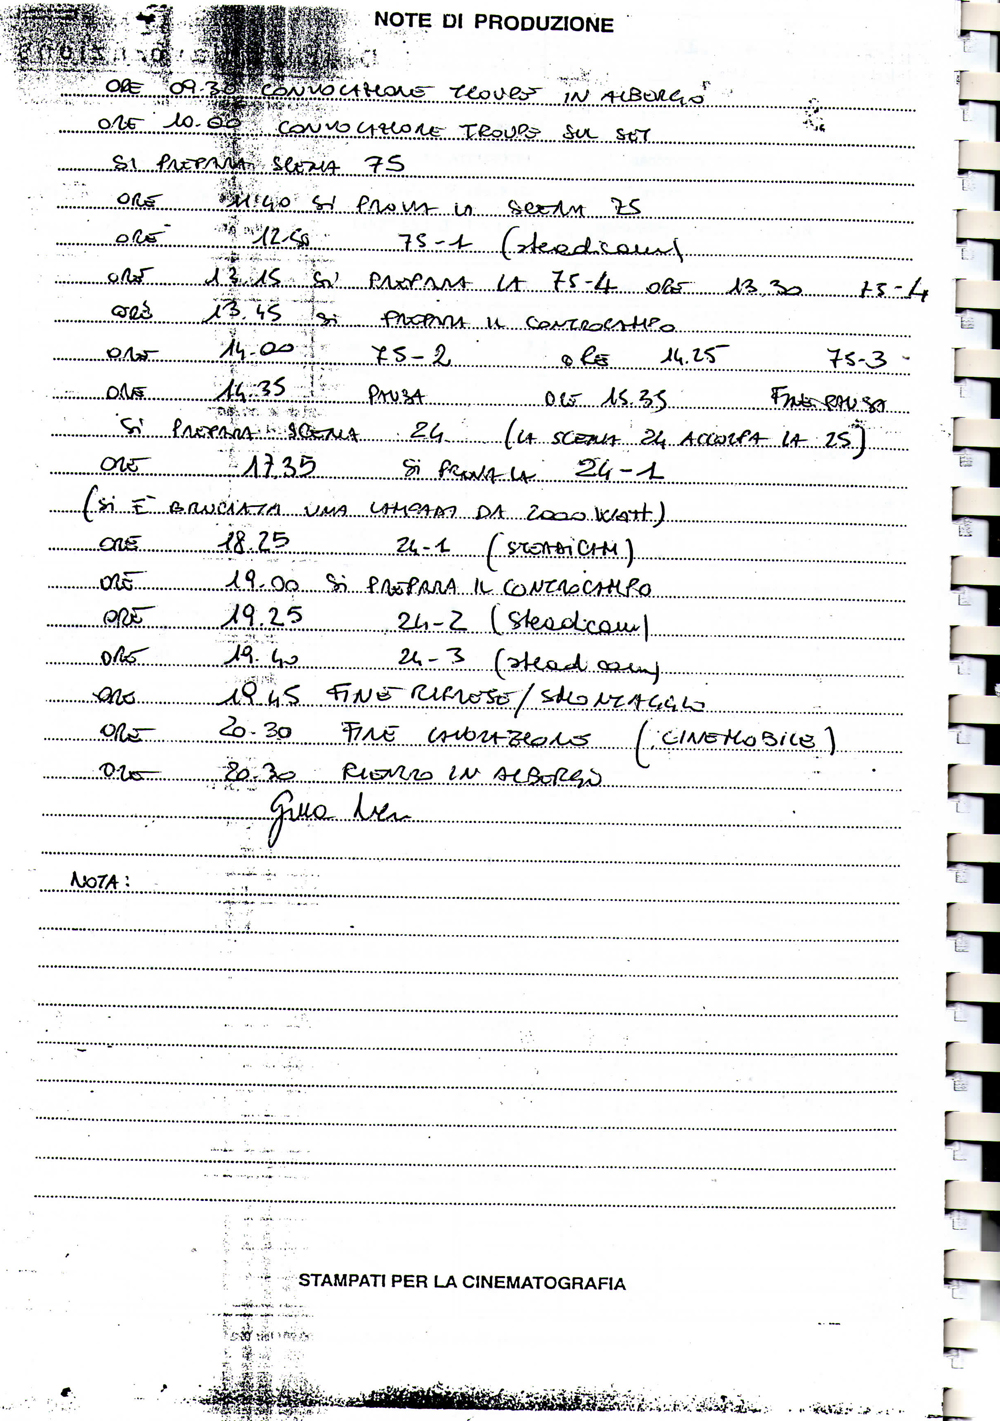 NOTE DI PRODUZIONE
ORE 09.30 CONVOCAZIONE TROUPE IN ALBERGO
ORE 10.00 CONVOCAZIONE TROUPE SUL SET
SI PREPARA SCENA 75
ORE 11.40 SI PROVA LA SCENA 75
ORE 12.50 75-1 (steadicam)
ORE 13.15 SI PREPARA LA 75-4 ORE 13.30 75-4
ORE 13.45 SI PREPARA IL CONTROCAMPO
ORE 14.00 75-2 ORE 14.25 75-3
ORE 14.35 PAUSA ORE 15.35 FINE PAUSA
SI PREPARA SCENA 24 (LA SCENA 24 ACCORPA LA 25)
ORE 17.35 SI PROVA LA 24-1
(SI È BRUCIATA UNA LAMPADA DA 2000 WATT)
ORE 18.25 24-1 (STEADICAM)
ORE 19.00 SI PREPARA IL CONTROCAMPO
ORE 19.25 24-2 (Steadicam)
ORE 19.40 24-3 (steadicam)
ORE 19.45 FINE RIPRESE/SMONTAGGIO
ORE 20.30 FINE LAVORAZIONE (CINEMOBILE)
ORE 20.30 RIENTRO IN ALBERGO
NOTA:
STAMPATI PER LA CINEMATOGRAFIA